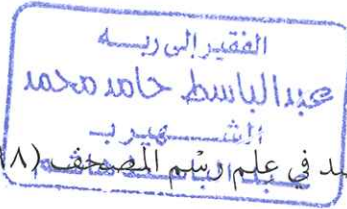 الفقير إلى ربه
عبدالباسط حامد محمد
الشهير ب
ـد في علم رسم المصحف (١٨